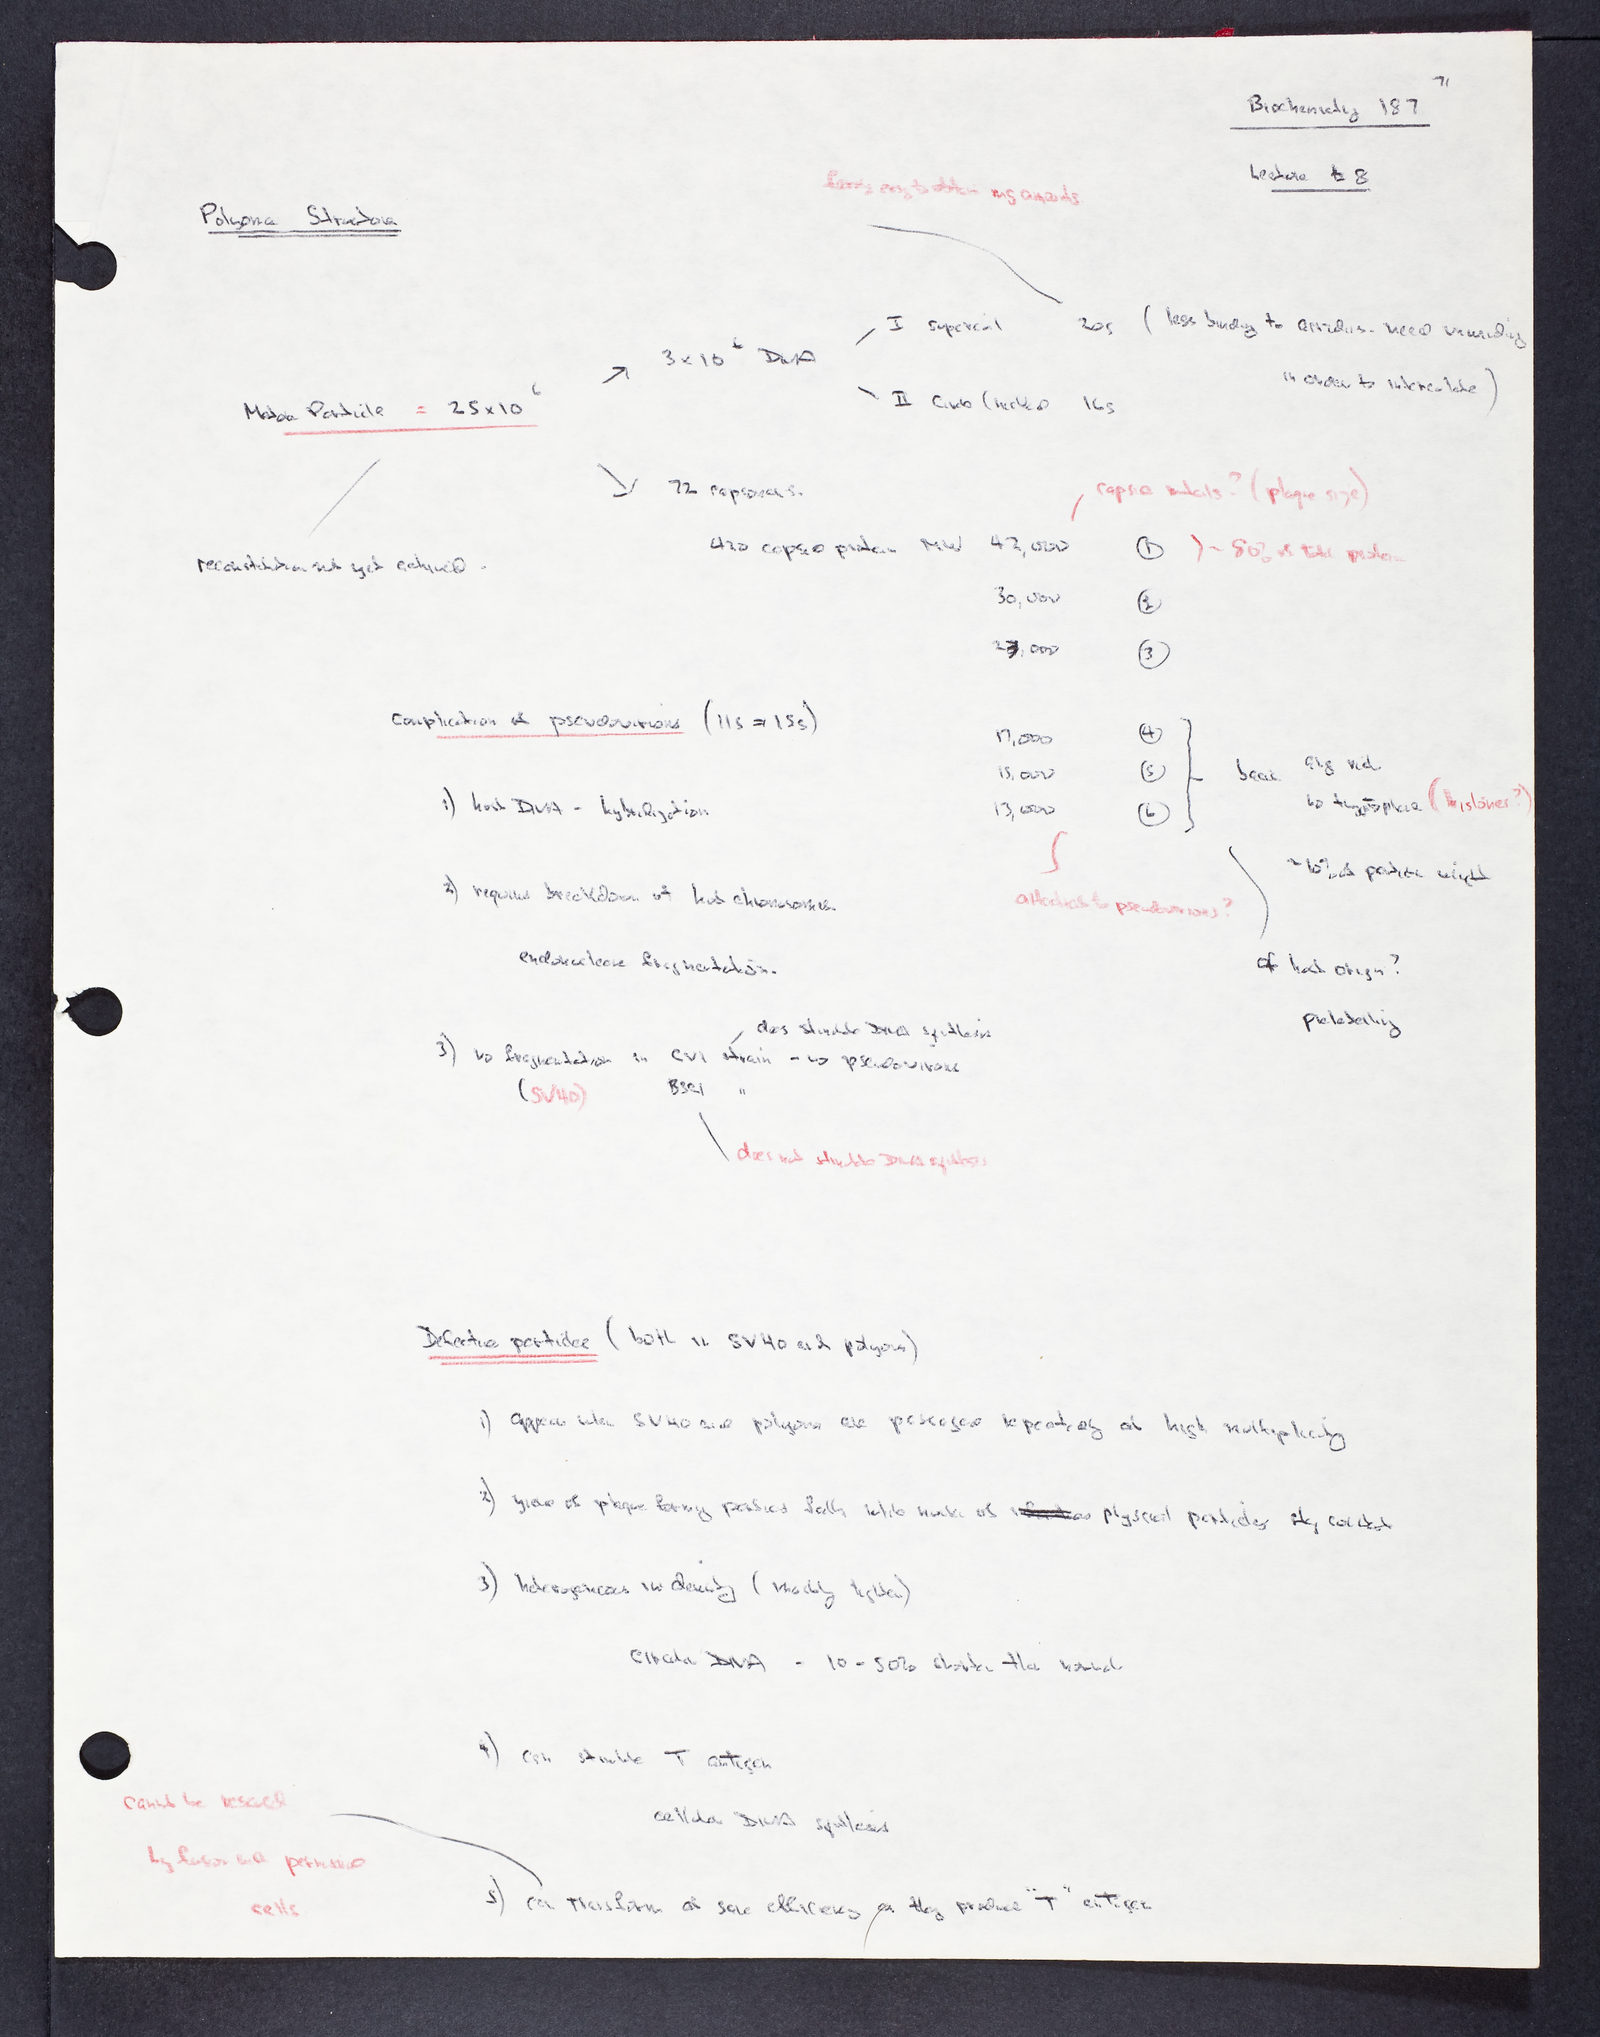 71
Biochemistry 187
Lecture 8
fairly easy to obtain mg amounts
Polyoma Structure
I supercoil 20s (less binding to acridines - need unwinding
in order to intercalate)
3 x 10^6 DNA
Mature Particle = 25 x 10^6
II circle (nicked) 16s
72 capsomers.
capsid mutants? (plaque size)
420 capsid protein MW 42,000 ① ) ~ 80% of total protein
reconstitution not yet achieved.
30,000 ②
23,000 ③
Complication of pseudovirions (11s = 15s)
17,000 ④
15,000 ⑤ basic arg rich
13,000 ⑥ no tryptophane (histones?)
1) host DNA - hybridization
~10% of particle weight
2) requires breakdown of host chromosomes.
attached to pseudovirions?
endonuclease fragmentation.
of host origin?
prelabelling
does stimulate DNA synthesis
3) no fragmentation in CV1 strain - no pseudovirions
(SV40) BSC1 "
does not stimulate DNA synthesis
Defective particles (both in SV40 and polyoma)
1) appear when SV40 and polyoma are passaged repeatedly at high multiplicity
2) yield of plaque forming particles falls while number of physical particles stay constant
3) heterogeneous in density (mostly lighter)
Circular DNA - 10-50% shorter than normal
4) can stimulate T antigen
cellular DNA synthesis
cannot be rescued
by fusion with permissive
cells
5) can transform at same efficiency as they produce "T" antigen